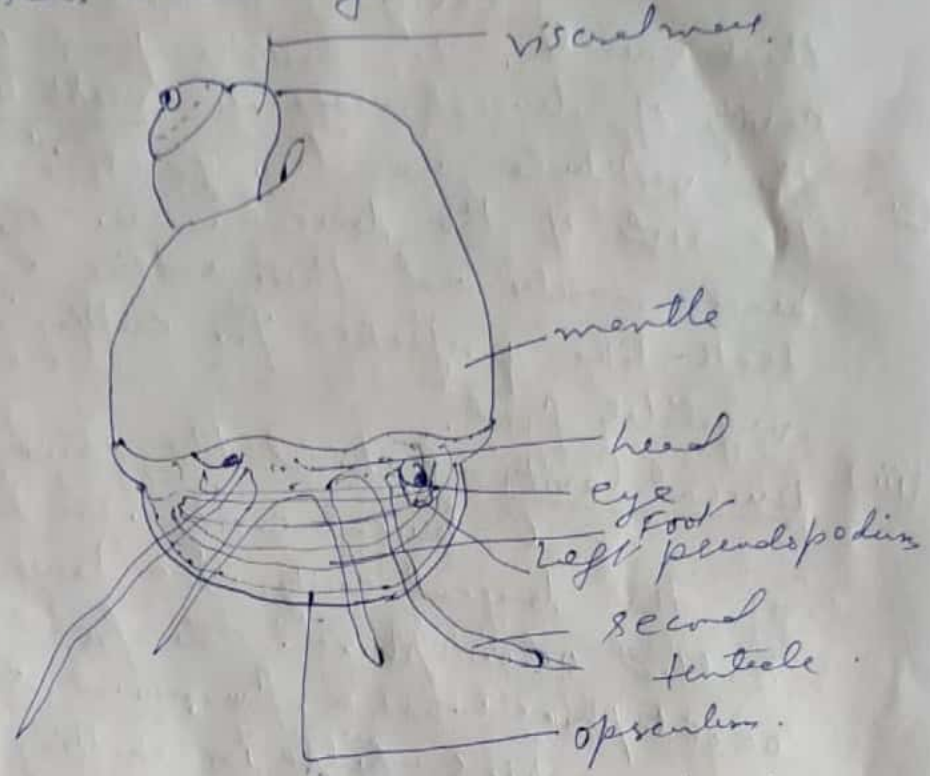 visceral mass.
mentle
head
eye
Foot
Left pseudopodium
second
tentacle.
opsculum.